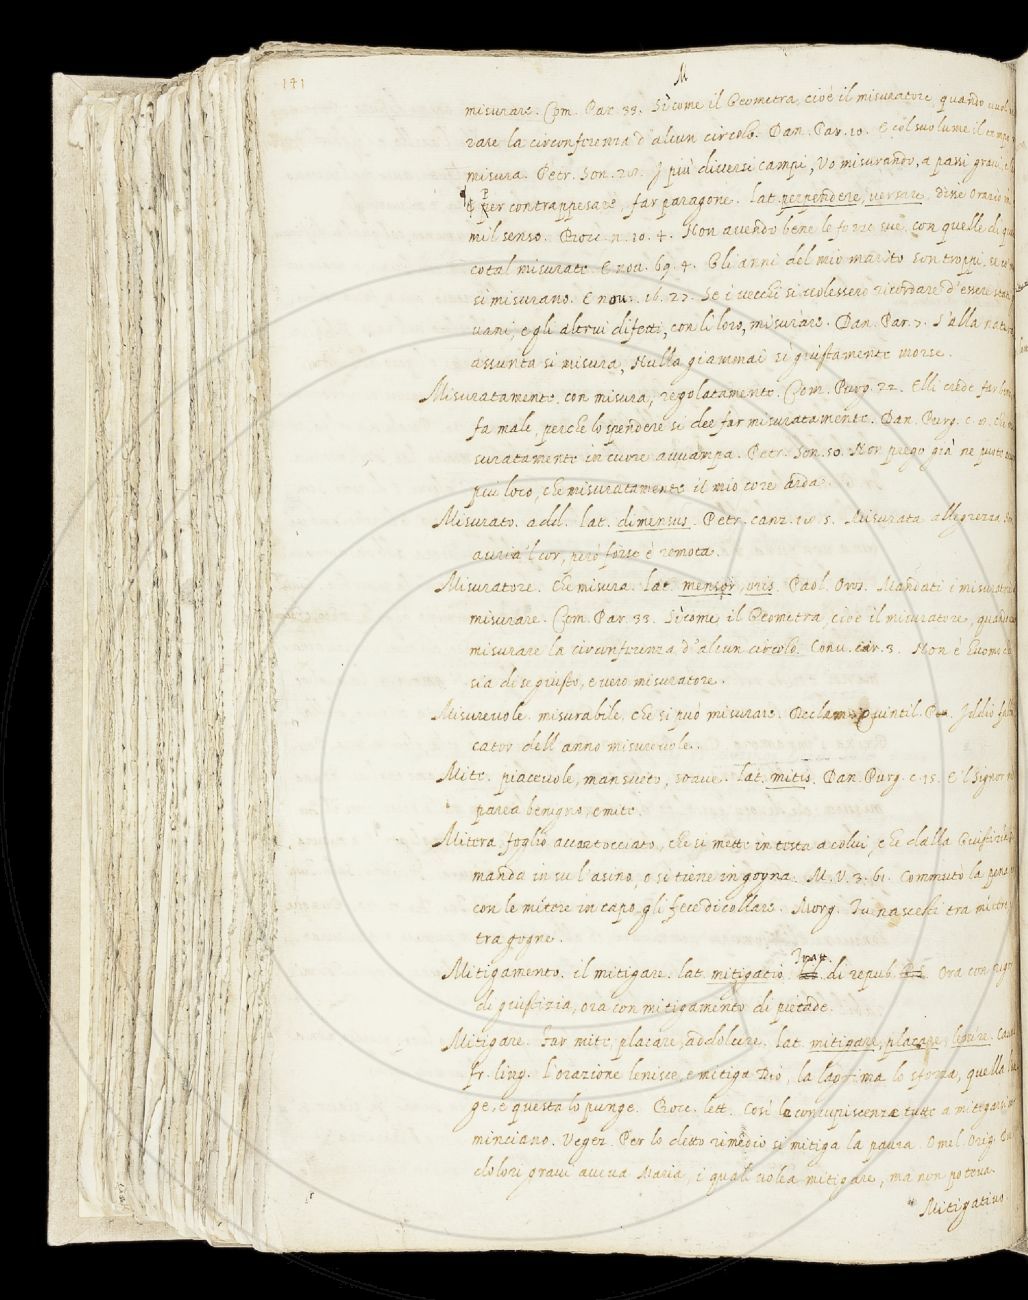 141
M
misurare. Com. Par. 33. Sì come il Geometra, cioè il misuratore, quando vuol
rare la circunferenza d'alcun circolo. Dan. Par. 10. E col suo lume il
misura. Petr. Son. 28. I più diversi campi, Vo misurando, a passi
¶ per contrappesare, far paragone. lat. perpendere, versare, disse Orazio in
mil senso. Bocc. n. 10. 4. Non avendo bene le forze sue, con quelle di
cotal misurate. E nov. 69. 4. Gli anni del mio marito son troppi, se
si misurano. E nov. 16. 27. Se i vecchi si volessero ricordare d'essere stati
vani, e gli altrui difetti, con li loro, misurare. Dan. Par. 7. S'alla natura
assunta si misura, Nulla giammai sì giustamente morse.
Misuratamente. con misura, regolatamente. Com. Purg. 22. Elli crede far bene
fa male, perche lo spendere si dee far misuratamente. Dan. Purg. c. 8. che
suratamente in cuore avvampa. Petr. Son. 50. Non prego già, ne puote
più loco, che misuratamente il mio core arda.
Misurato. add. lat. dimensus. Petr. canz. 18. 5. Misurata allegrezza
avria 'l cor, però forse è remota.
Misuratore. Che misura. lat. mensor, oris. Paol. Oros. Mandati i misuratori
misurare. Com. Par. 33. Sì come il Geometra, cioè il misuratore, quando
misurare la circunferenza d'alcun circolo. Conv. car. 3. Non è huomo
sia di se giusto, e vero misuratore.
Misurevole. misurabile, che si può misurare. Declam. Quintil. P. Iddio
cator dell'anno misurevole.
Mite. piacevole, mansueto, soave. lat. mitis. Dan. Purg. c. 15. E 'l Signor
parea benigno, e mite.
Mitera. foglio accartocciato, che si mette in testa a colui, che dalla Giustizia
manda in su l'asino, o si tiene in gogna. M. V. 3. 61. Commutò la pena
con le mitere in capo gli fece dicollare. Morg. Tu nascesti tra mitere
tra gogne.
Mitigamento. il mitigare. lat. mitigatio. Tratt. di repub. Ora con rigor
di giustizia, ora con mitigamento di pietade.
Mitigare. Far mite, placare, addolcire. lat. mitigare, placare, lenire. Cav.
fr. ling. l'orazione lenisce, e mitiga Dio, la lagrima lo sforza, quella
ge, e questa lo punge. Bocc. lett. Così le concupiscenze tutte a mitigarsi
minciano. Veget. Per lo detto rimedio si mitiga la paura. Omel. Orig.
dolori gravi aveva Maria, i quali volea mitigare, ma non poteva.
Mitigativo